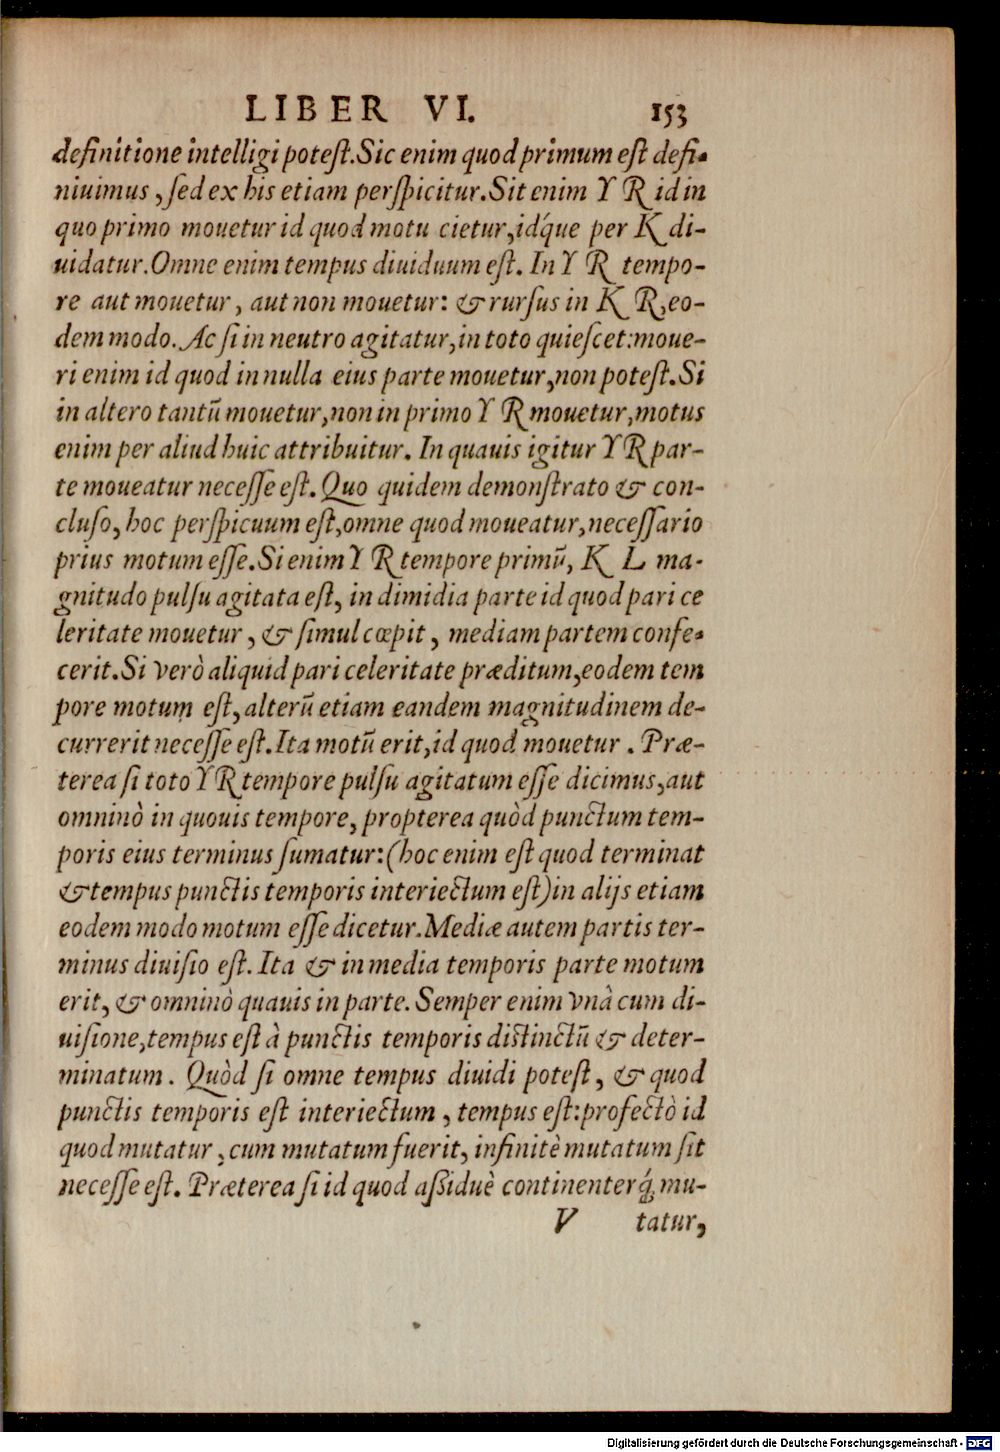 LIBER VI. 153
definitione intelligi potest. Sic enim quod primum est defi-
niuimus, sed ex his etiam perspicitur. Sit enim Y R id in
quo primo mouetur id quod motu cietur, idq́ue per K di-
uidatur. Omne enim tempus diuiduum est. In Y R tempo-
re aut mouetur, aut non mouetur: & rursus in K R, eo-
dem modo. Ac si in neutro agitatur, in toto quiescet: moue-
ri enim id quod in nulla eius parte mouetur, non potest. Si
in altero tantũ mouetur, non in primo Y R mouetur, motus
enim per aliud huic attribuitur. In quauis igitur Y R par-
te moueatur necesse est. Quo quidem demonstrato & con-
cluso, hoc perspicuum est, omne quod moueatur, necessario
prius motum esse. Si enim Y R tempore primũ, K L ma-
gnitudo pulsu agitata est, in dimidia parte id quod pari ce
leritate mouetur, & simul cœpit, mediam partem confe-
cerit. Si verò aliquid pari celeritate præditum, eodem tem
pore motum est, alterũ etiam eandem magnitudinem de-
currerit necesse est. Ita motũ erit, id quod mouetur. Præ-
terea si toto Y R tempore pulsu agitatum esse dicimus, aut
omninò in quouis tempore, propterea quòd punctum tem-
poris eius terminus sumatur: (hoc enim est quod terminat
& tempus punctis temporis interiectum est) in alijs etiam
eodem modo motum esse dicetur. Mediæ autem partis ter-
minus diuisio est. Ita & in media temporis parte motum
erit, & omninò quauis in parte. Semper enim vnà cum di-
uisione, tempus est à punctis temporis distinctũ & deter-
minatum. Quòd si omne tempus diuidi potest, & quod
punctis temporis est interiectum, tempus est: profectò id
quod mutatur, cum mutatum fuerit, infinitè mutatum sit
necesse est. Præterea si id quod assiduè continenterq́; mu-
V tatur,
Digitalisierung gefördert durch die Deutsche Forschungsgemeinschaft - DFG